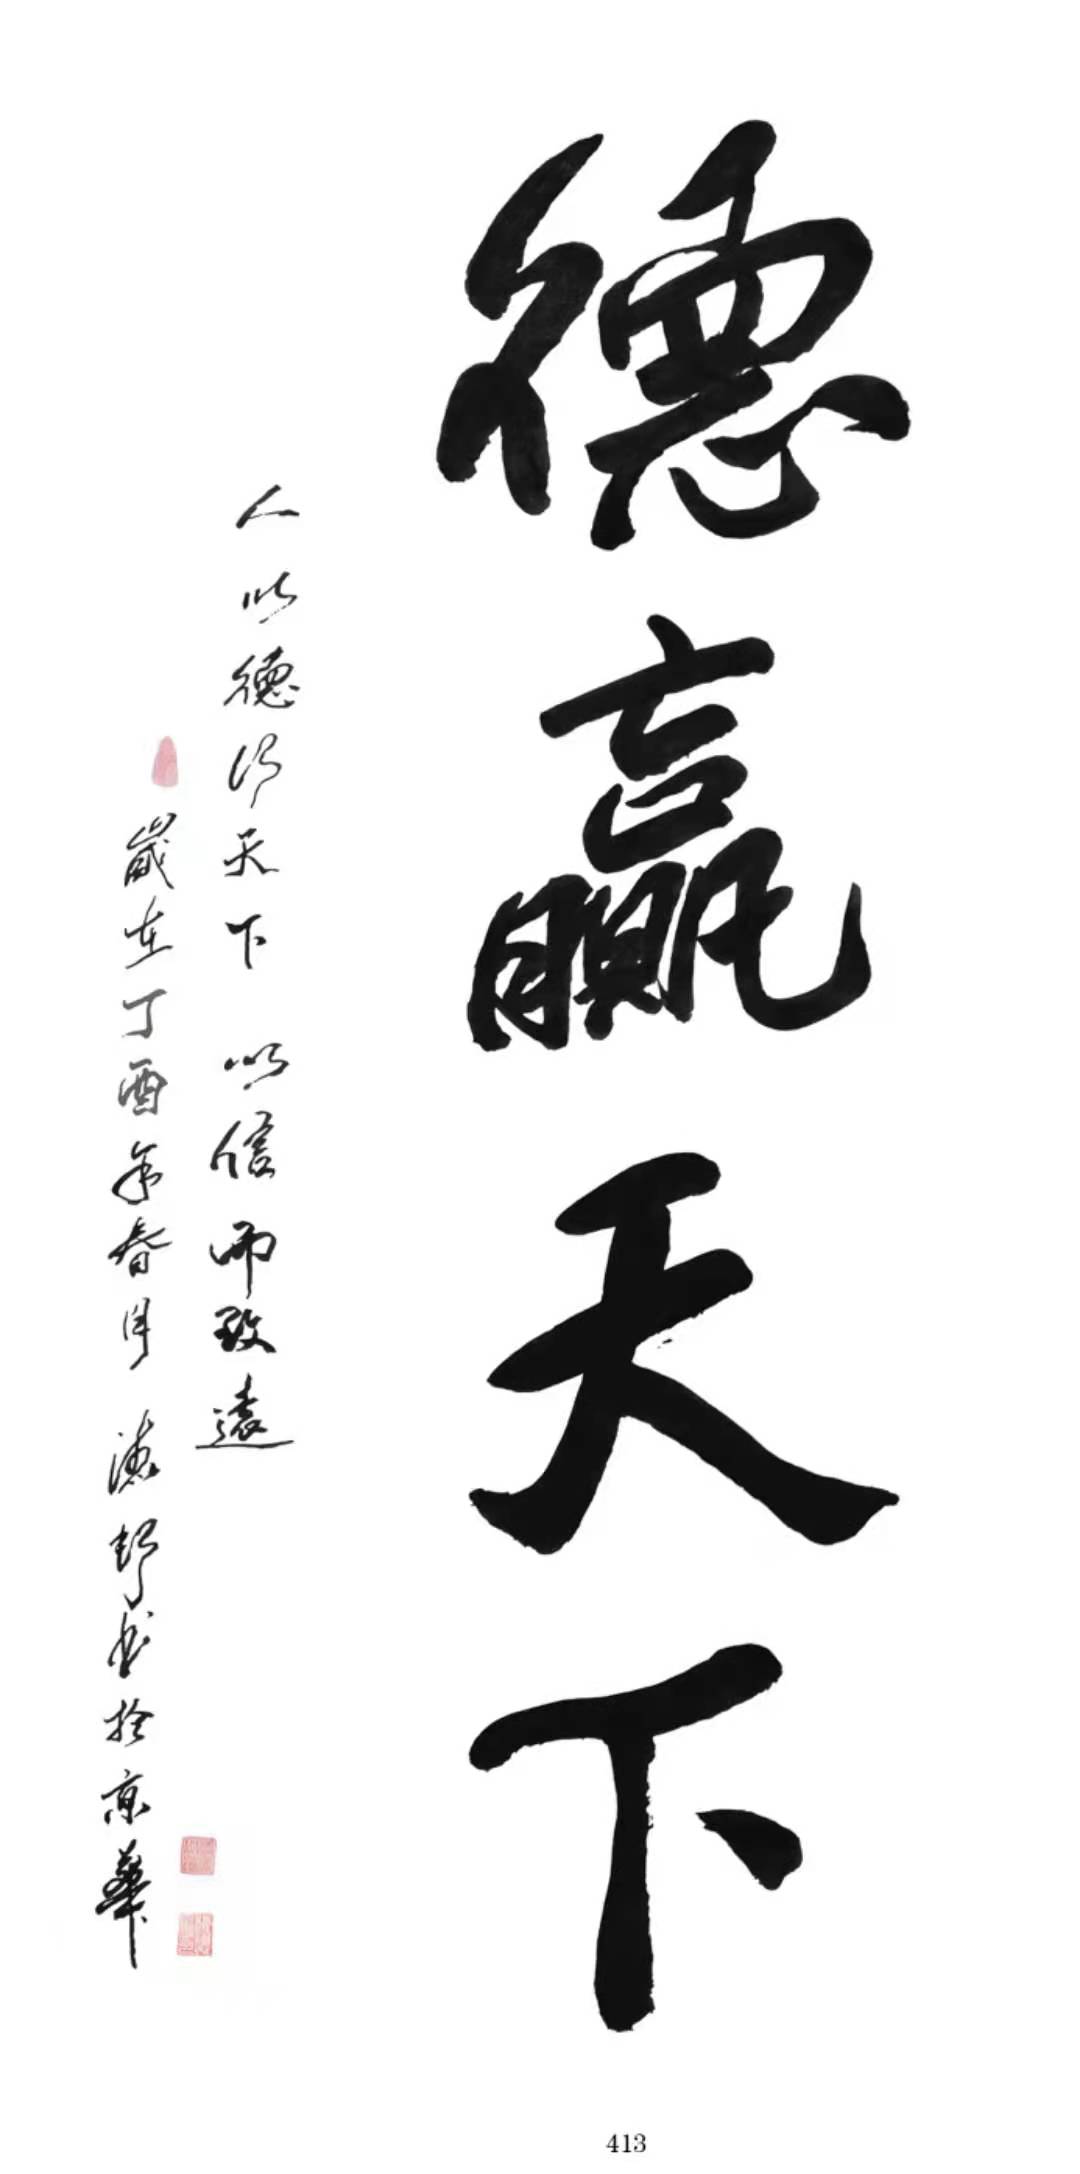 德赢天下
人以德行天下 以信而致遠
歲在丁酉年春月 德邦書於京華
413